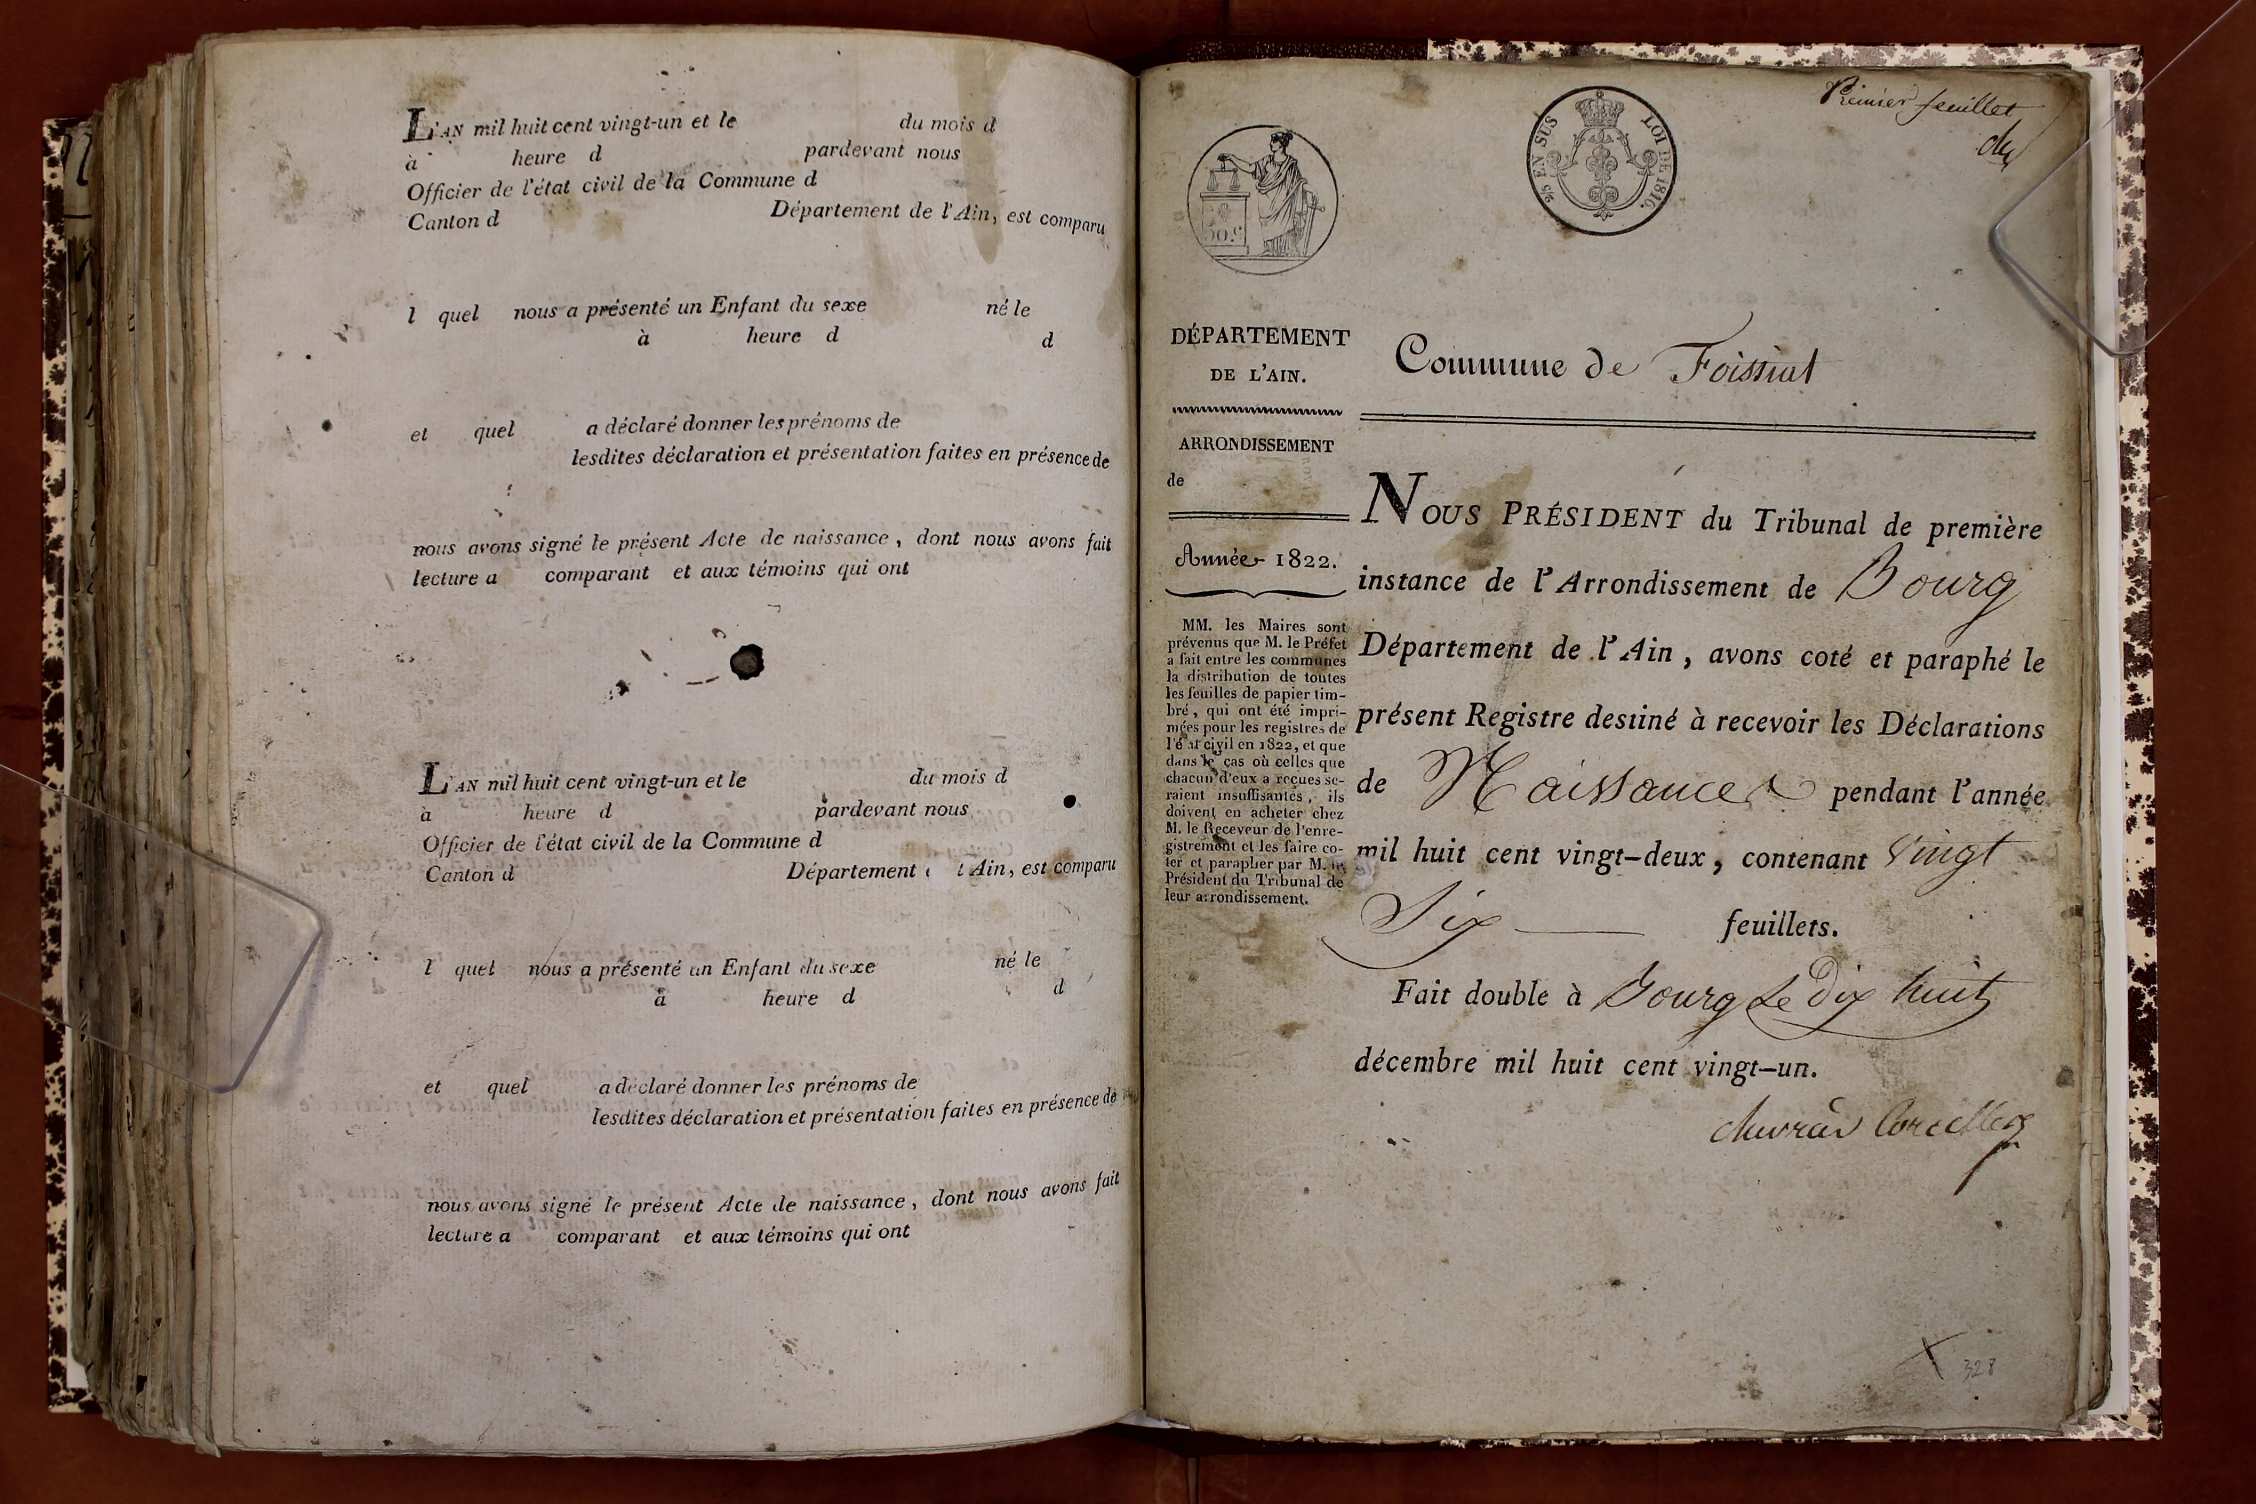 L'AN mil huit cent vingt-un et le du mois d
à heure d pardevant nous
Officier de l'état civil de la Commune d
Canton d Département de l'Ain, est comparu
l quel nous a présenté un Enfant du sexe né le
à heure d d
et quel a déclaré donner les prénoms de
lesdites déclaration et présentation faites en présence de
nous avons signé le présent Acte de naissance, dont nous avons fait
lecture a comparant et aux témoins qui ont
L'AN mil huit cent vingt-un et le du mois d
à heure d pardevant nous
Officier de l'état civil de la Commune d
Canton d Département l'Ain, est comparu
l quel nous a présenté un Enfant du sexe né le
à heure d d
et quel a déclaré donner les prénoms de
lesdites déclaration et présentation faites en présence de
nous avons signé le présent Acte de naissance, dont nous avons fait
lecture a comparant et aux témoins qui ont
Premier feuillet
EN SUS LOI DE 1816.
DÉPARTEMENT
DE L'AIN.
ARRONDISSEMENT
de
Année 1822.
MM. les Maires sont
prévenus que M. le Préfet
a fait entre les communes
la distribution de toutes
les feuilles de papier tim-
bré, qui ont été impri-
mées pour les registres de
l'état civil en 1822, et que
dans le cas où celles que
chacun d'eux a reçues se-
raient insuffisantes, ils
doivent en acheter chez
M. le Receveur de l'enre-
gistrement et les faire co-
ter et parapher par M. le
Président du Tribunal de
leur arrondissement.
Commune de Foissiat
NOUS PRÉSIDENT du Tribunal de première
instance de l'Arrondissement de Bourg
Département de l'Ain, avons coté et paraphé le
présent Registre destiné à recevoir les Déclarations
de Naissances pendant l'année
mil huit cent vingt-deux, contenant vingt
Six feuillets.
Fait double à Bourg Le Dix huit
décembre mil huit cent vingt-un.
328